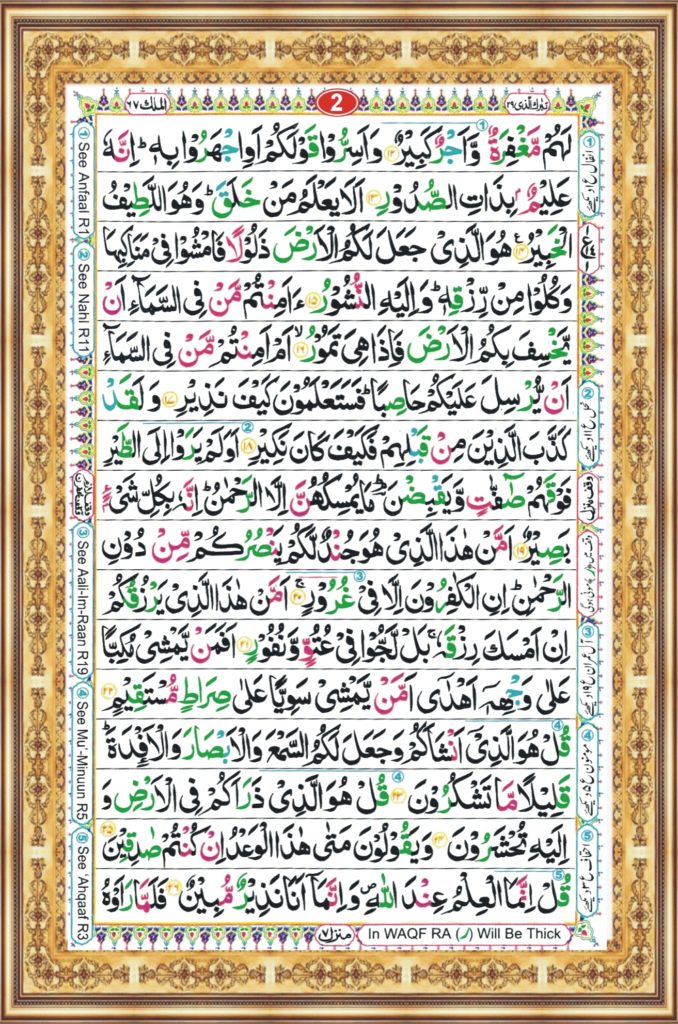 تبٰرك الذی ٢٩
2
الملك ٦٧
لَهُمْ مَّغْفِرَةٌ وَّاَجْرٌ كَبِيْرٌ ۝١٢ وَاَسِرُّوْا قَوْلَكُمْ اَوِاجْهَرُوْا بِهٖ ؕ اِنَّهٗ
عَلِيْمٌۢ بِذَاتِ الصُّدُوْرِ ۝١٣ اَلَا يَعْلَمُ مَنْ خَلَقَ ؕ وَهُوَ اللَّطِيْفُ
الْخَبِيْرُ ۝١٤ هُوَ الَّذِىْ جَعَلَ لَكُمُ الْاَرْضَ ذَلُوْلًا فَامْشُوْا فِىْ مَنَاكِبِهَا
وَكُلُوْا مِنْ رِّزْقِهٖ ؕ وَاِلَيْهِ النُّشُوْرُ ۝١٥ ءَاَمِنْتُمْ مَّنْ فِى السَّمَآءِ اَنْ
يَّخْسِفَ بِكُمُ الْاَرْضَ فَاِذَا هِىَ تَمُوْرُ ۝١٦ اَمْ اَمِنْتُمْ مَّنْ فِى السَّمَآءِ
اَنْ يُّرْسِلَ عَلَيْكُمْ حَاصِبًا ؕ فَسَتَعْلَمُوْنَ كَيْفَ نَذِيْرِ ۝١٧ وَلَقَدْ
كَذَّبَ الَّذِيْنَ مِنْ قَبْلِهِمْ فَكَيْفَ كَانَ نَكِيْرِ ۝١٨ اَوَلَمْ يَرَوْا اِلَى الطَّيْرِ
فَوْقَهُمْ صٰٓفّٰتٍ وَّيَقْبِضْنَ ؔۘ مَا يُمْسِكُهُنَّ اِلَّا الرَّحْمٰنُ ؕ اِنَّهٗ بِكُلِّ شَىْءٍۢ
بَصِيْرٌ ۝١٩ اَمَّنْ هٰذَا الَّذِىْ هُوَ جُنْدٌ لَّكُمْ يَنْصُرُكُمْ مِّنْ دُوْنِ
الرَّحْمٰنِ ؕ اِنِ الْكٰفِرُوْنَ اِلَّا فِىْ غُرُوْرٍ ۝٢٠ اَمَّنْ هٰذَا الَّذِىْ يَرْزُقُكُمْ
اِنْ اَمْسَكَ رِزْقَهٗ ۚ بَلْ لَّجُّوْا فِىْ عُتُوٍّ وَّنُفُوْرٍ ۝٢١ اَفَمَنْ يَّمْشِىْ مُكِبًّا
عَلٰى وَجْهِهٖۤ اَهْدٰٓى اَمَّنْ يَّمْشِىْ سَوِيًّا عَلٰى صِرَاطٍ مُّسْتَقِيْمٍ ۝٢٢
قُلْ هُوَ الَّذِىْۤ اَنْشَاَكُمْ وَجَعَلَ لَكُمُ السَّمْعَ وَالْاَبْصَارَ وَالْاَفْئِدَةَ ؕ
قَلِيْلًا مَّا تَشْكُرُوْنَ ۝٢٣ قُلْ هُوَ الَّذِىْ ذَرَاَكُمْ فِى الْاَرْضِ وَ
اِلَيْهِ تُحْشَرُوْنَ ۝٢٤ وَيَقُوْلُوْنَ مَتٰى هٰذَا الْوَعْدُ اِنْ كُنْتُمْ صٰدِقِيْنَ ۝٢٥
قُلْ اِنَّمَا الْعِلْمُ عِنْدَ اللّٰهِ ۪ وَاِنَّمَاۤ اَنَا نَذِيْرٌ مُّبِيْنٌ ۝٢٦ فَلَمَّا رَاَوْهُ
منزل ٧
In WAQF RA (ر) Will Be Thick
① See Anfaal R1
② See Nahl R11
③ See Aali-Im-Raan R19
④ See Mu'-Minuun R5
⑤ See 'Ahqaaf R3
① انفال ع ١ دیکھئے
② نحل ع ١١ دیکھئے
③ آل عمران ع ١٩ دیکھئے
④ مومنون ع ٥ دیکھئے
⑤ احقاف ع ٣ دیکھئے